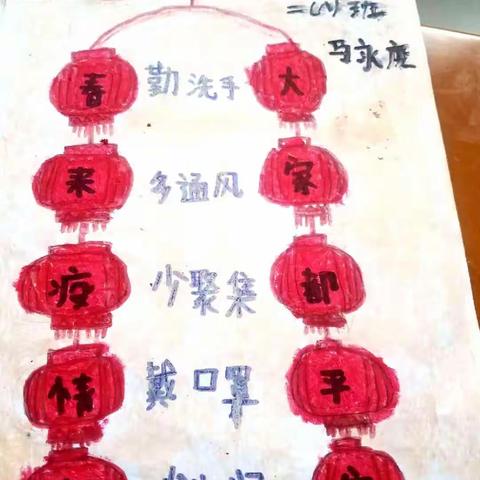 二(八)班
马永虎
春 勤洗手 大
来 多通风 家
疫 少聚集 都
情 戴口罩 平